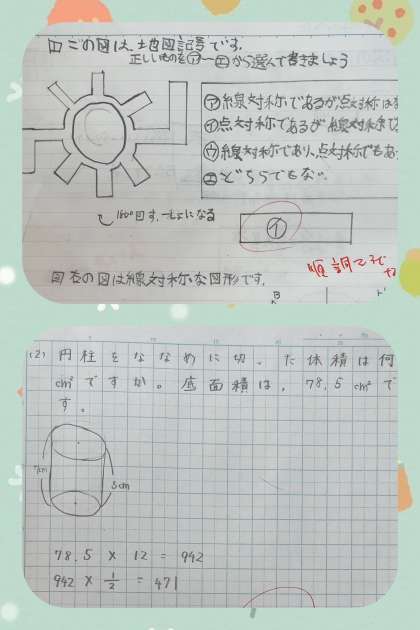 1 この図は、地図記号です。
正しいものを㋐〜㋓から選んで書きましょう
㋐線対称であるが点対称は
㋑点対称であるが線対称
㋒線対称であり、点対称でもあ
㋓どちらでもない。
180°回す、一しょになる
㋑
順調です
右の図は線対称な図形です。
(2) 円柱をななめに切った体積は何
cm³ですか。底面積は、78.5cm²で
す。
7cm
5cm
78.5 × 12 = 942
942 × 1/2 = 471